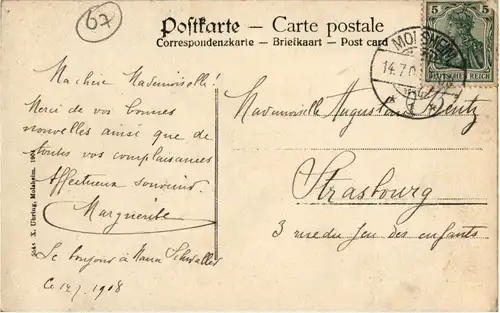 67
Postkarte - Carte postale
Correspondenzkarte - Briefkaart - Post card
MOLSHEIM
14.7.0
5 5
DEUTSCHES REICH
Ma chère Mademoiselle!
Merci de vos bonnes
nouvelles ainsi que de
toutes vos complaisances
Affectueux souvenir.
Marguerite
Le bonjour à Nana Schwaller
le 14.7.1908
Mademoiselle Augustine
Strasbourg
3 rue du Jeu des enfants
X. Uhring, Molsheim. 1904